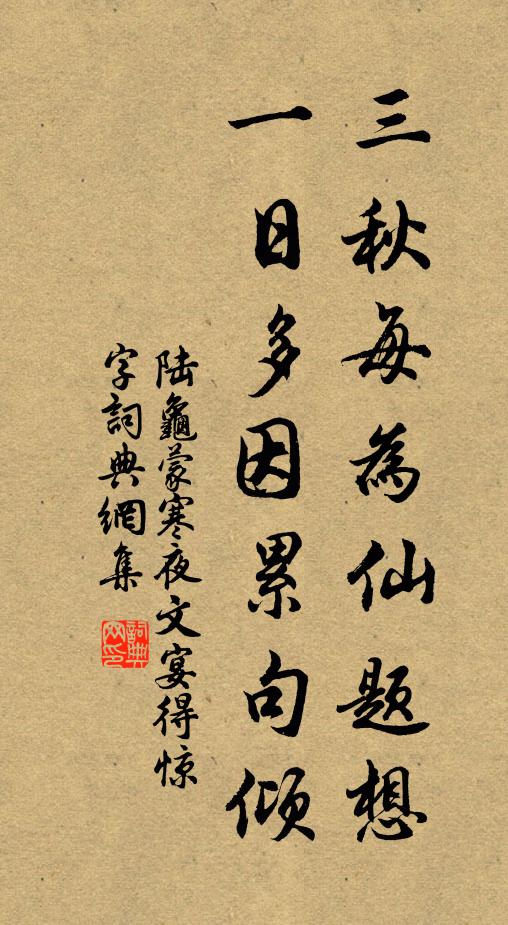 三秋每為仙題想
一日多因累句傾
陆龜蒙寒夜文宴得惊
字詞典網集
詞典网印